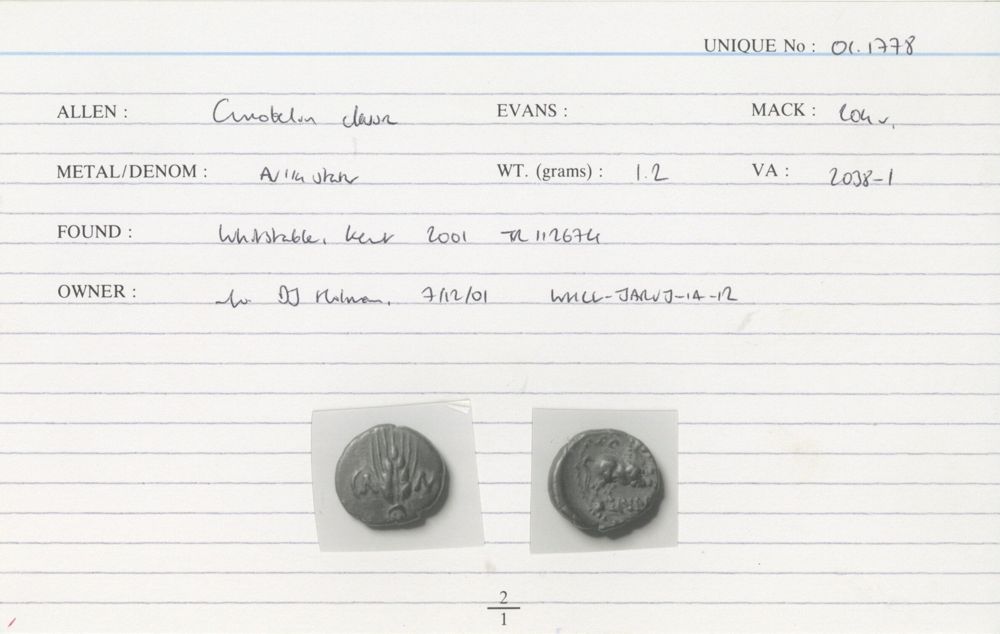 UNIQUE No : 01.1778
ALLEN : Cunobelin classic EVANS : MACK :
METAL/DENOM : WT. (grams) : 1.2 VA : 2038-1
FOUND : Whitstable, Kent 2001 TR 112674
OWNER : DJ Holman, 7/12/01
2
1